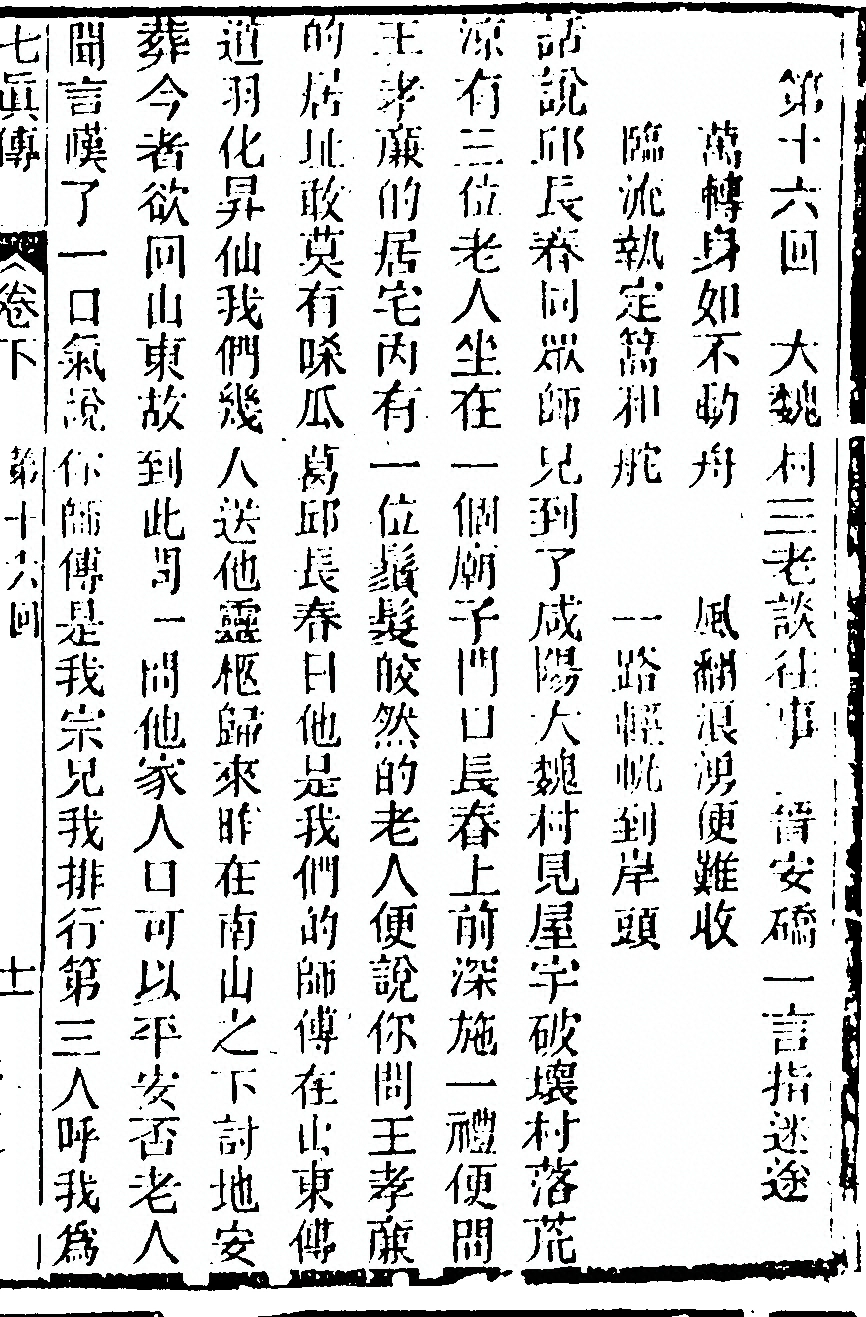 第十六回 大魏村三老談往事 晉安橋一言指迷途
萬轉身如不動舟 風翻浪湧便難收
臨流執定篙和舵 一路輕帆到岸頭
話說邱長春同眾師兄到了咸陽大魏村見屋宇破壞村落荒
涼有三位老人坐在一個廟子門口長春上前深施一禮便問
王孝廉的居宅內有一位鬚髮皎然的老人便說你問王孝廉
的居址敢莫有啋瓜葛邱長春曰他是我們的師傅在山東傳
道羽化昇仙我們幾人送他靈柩歸來昨在南山之下討地安
葬今者欲回山東故到此問一問他家人口可以平安否老人
聞言嘆了一口氣說你師傅是我宗兄我排行第三人呼我為
七真傳 卷下 第十六回 十一